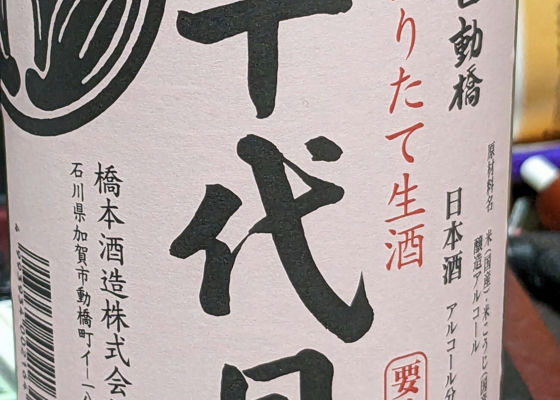 動橋
りたて生酒
原材料名 米(国産)・米こうじ(国産
醸造アルコール
日本酒
アルコール分
要
代
橋本酒造株式会
石川県加賀市動橋町イ一八